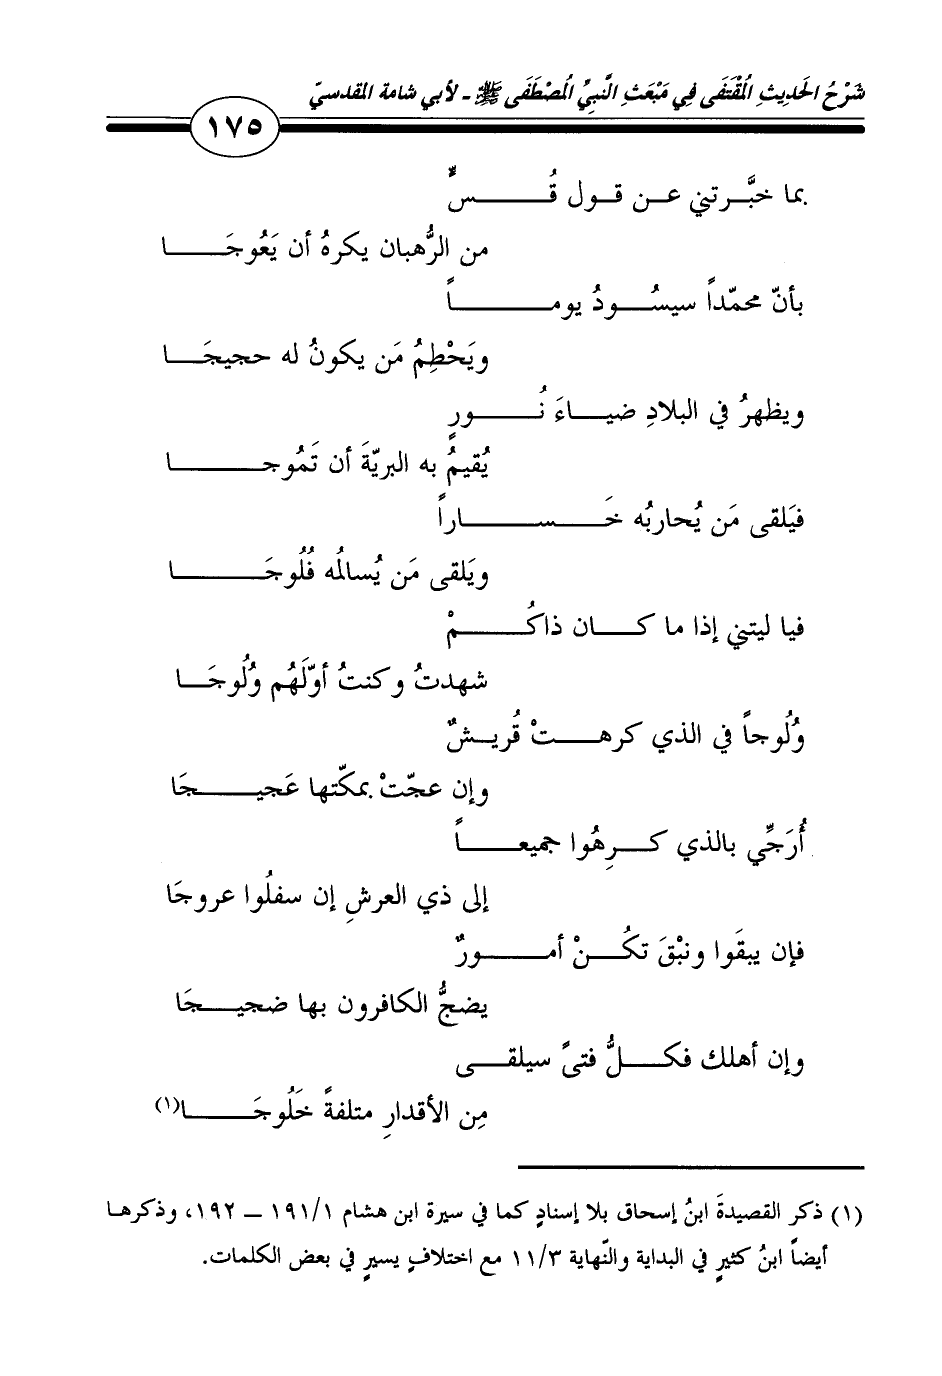 شَرْحُ الحَديثِ المُقْتَفَى فِي مَبْعَثِ النَّبِيِّ المُصْطَفَى ﷺ ـ لأبي شامة المقدسيّ
١٧٥
بما خبَّرتني عن قول قُسٍّ
من الرُّهبان يكرهُ أن يَعُوجَا
بأنّ محمّداً سيسُودُ يوماً
ويَحْطِمُ مَن يكونُ له حجيجَا
ويظهرُ في البلادِ ضياءَ نُورٍ
يُقيمُ به البريّةَ أن تَمُوجا
فيَلقى مَن يُحاربُه خَساراً
ويَلقى مَن يُسالمُه فُلُوجَا
فيا ليتني إذا ما كان ذاكُمْ
شهدتُ وكنتُ أوّلَهُم وُلُوجَا
وُلُوجاً في الذي كرهتْ قُريشٌ
وإن عجّتْ بمكّتها عَجيجَا
أُرَجِّي بالذي كرِهُوا جميعاً
إلى ذي العرشِ إن سفلُوا عروجَا
فإن يبقَوا ونبْقَ تكُنْ أمورٌ
يضجُّ الكافرون بها ضجيجَا
وإن أهلك فكلُّ فتىً سيلقى
مِن الأقدارِ متلفةً خَلُوجَا(١)
(١) ذكر القصيدةَ ابنُ إسحاق بلا إسنادٍ كما في سيرة ابن هشام ١٩١/١ ــ ١٩٢، وذكرها
أيضاً ابنُ كثيرٍ في البداية والنّهاية ١١/٣ مع اختلافٍ يسيرٍ في بعض الكلمات.